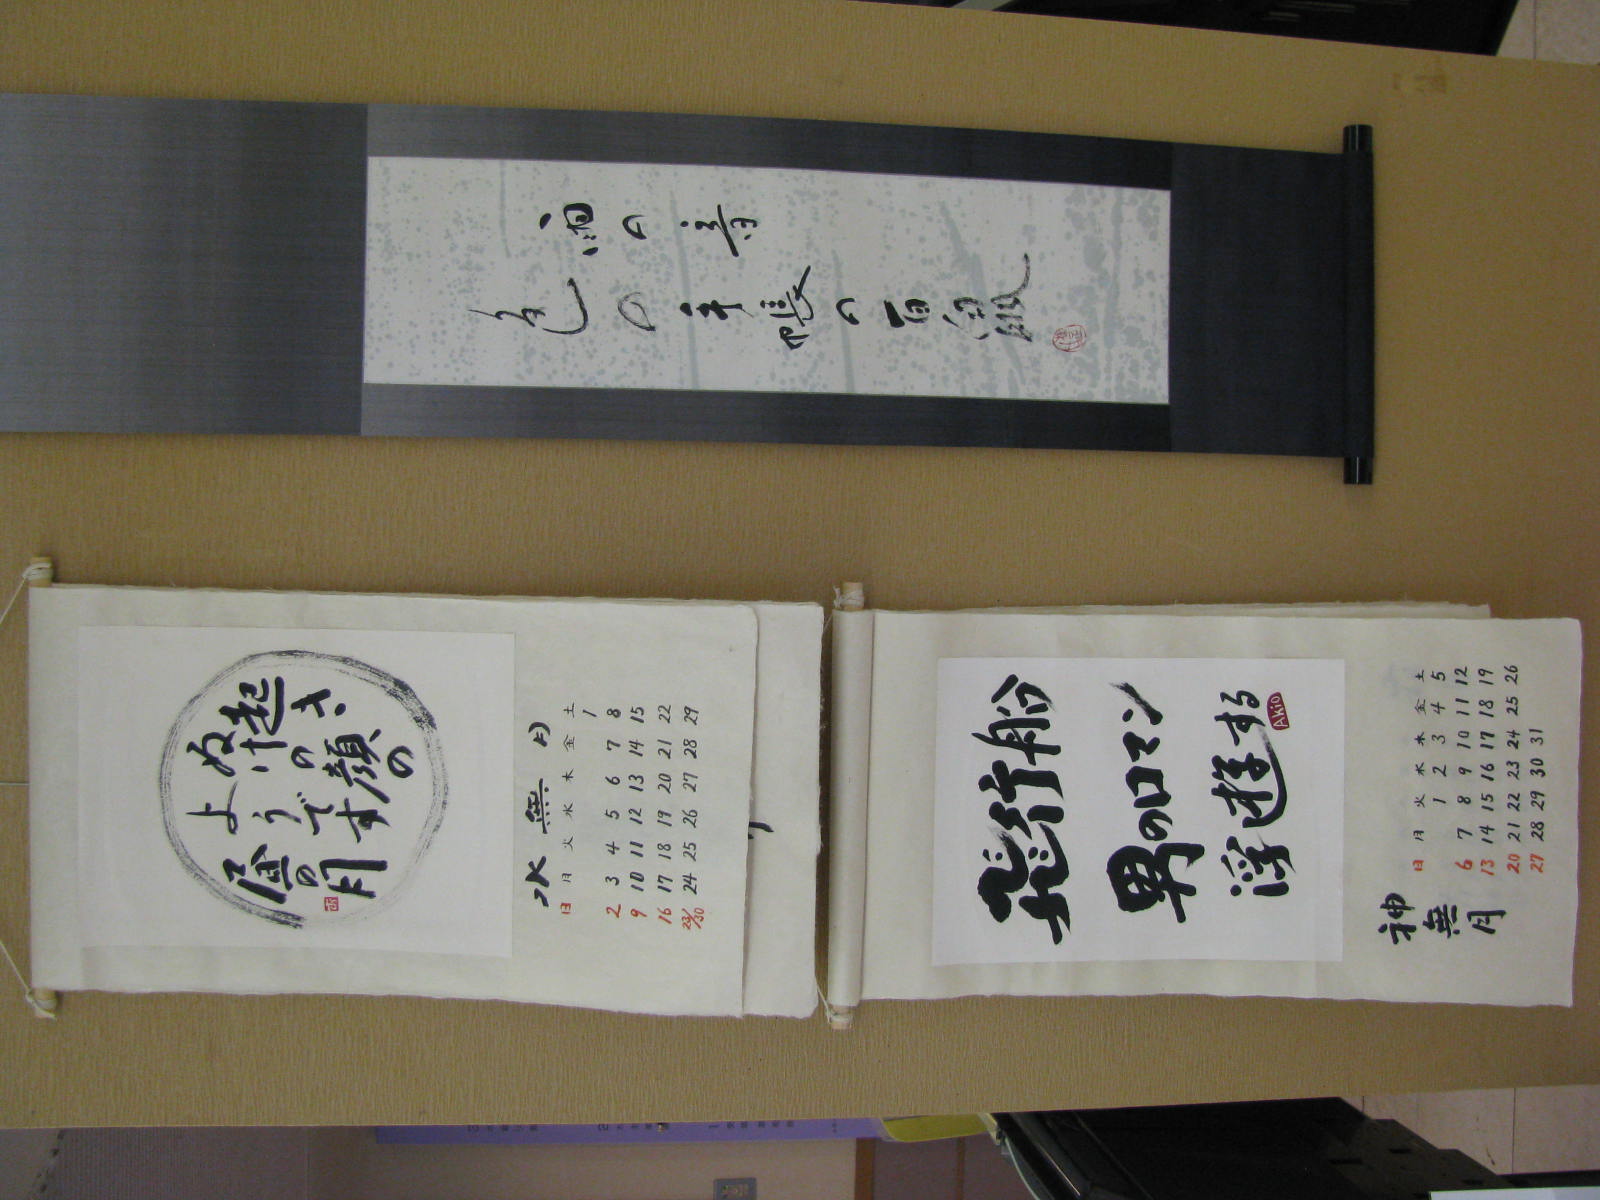 色の手帳の百鼠
起き
ぬけの顔の
ようです
昼の月
水無月
日 月 火 水 木 金 土
1
2 3 4 5 6 7 8
9 10 11 12 13 14 15
16 17 18 19 20 21 22
23/30 24 25 26 27 28 29
飛行船
男のロマン
浮遊する
Akio
神無月
日 月 火 水 木 金 土
1 2 3 4 5
6 7 8 9 10 11 12
13 14 15 16 17 18 19
20 21 22 23 24 25 26
27 28 29 30 31